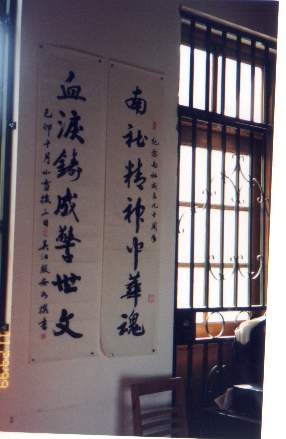 紀念南社成立九十周年
南社精神中華魂
血淚鑄成警世文
己卯十月小雪後三日
吴江殷安如撰書